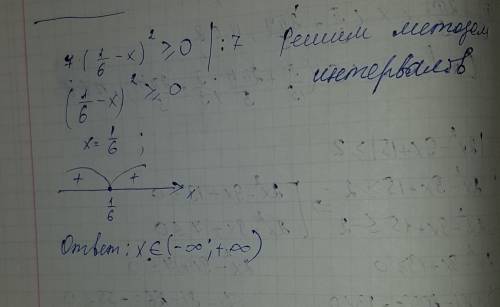 7(1/6-x)² ≥ 0 | :7 Решим методом
интервалов
(1/6-x)² ≥ 0
x = 1/6 ;
+ + x
1/6
Ответ: x ∈ (-∞; +∞)